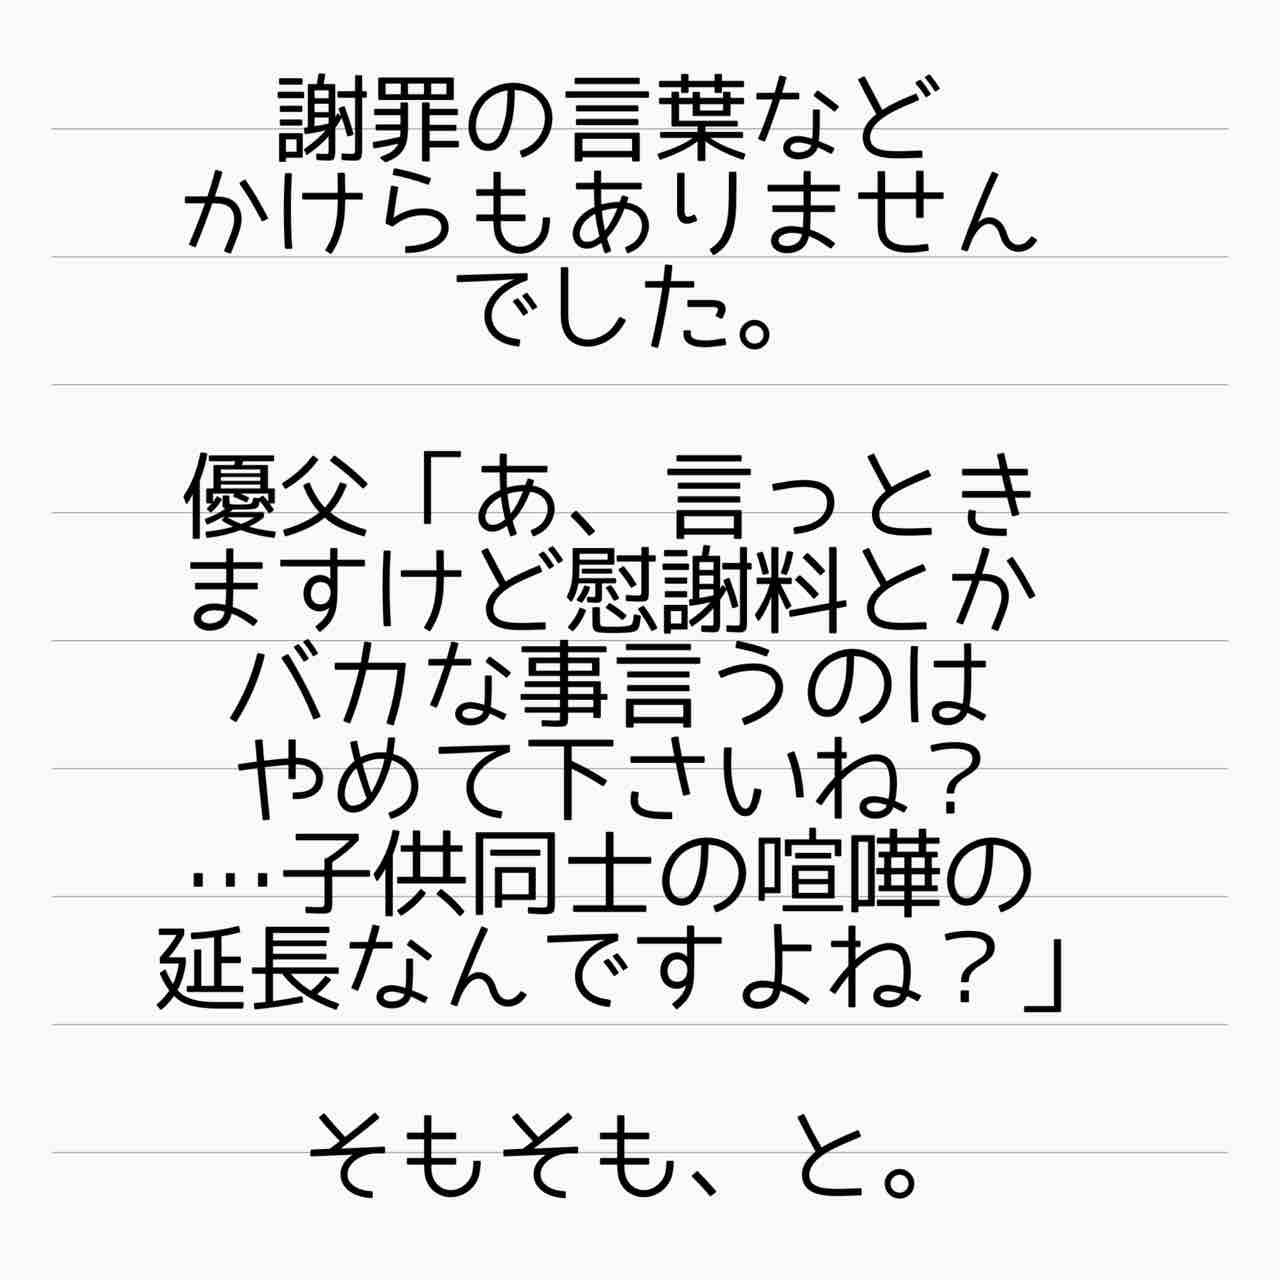 謝罪の言葉など
かけらもありません
でした。
優父「あ、言っとき
ますけど慰謝料とか
バカな事言うのは
やめて下さいね？
…子供同士の喧嘩の
延長なんですよね？」
そもそも、と。